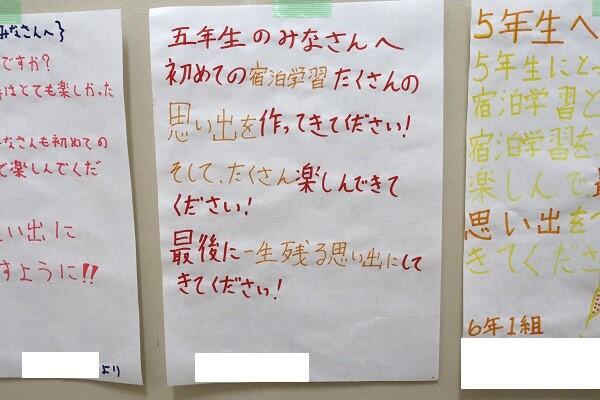 みなさんへ}
ですか?
はとても楽しかった
なさんも初めての
で楽しんでくだ
い出に
すように!!
より
五年生のみなさんへ
初めての宿泊学習たくさんの
思い出を作ってきてください!
そして、たくさん楽しんできて
ください!
最後に一生残る思い出にして
きてください!
5年生へ
5年生にとっ
宿泊学習と
宿泊学習を
楽しんで
思い出をつ
きてくださ
6年1組